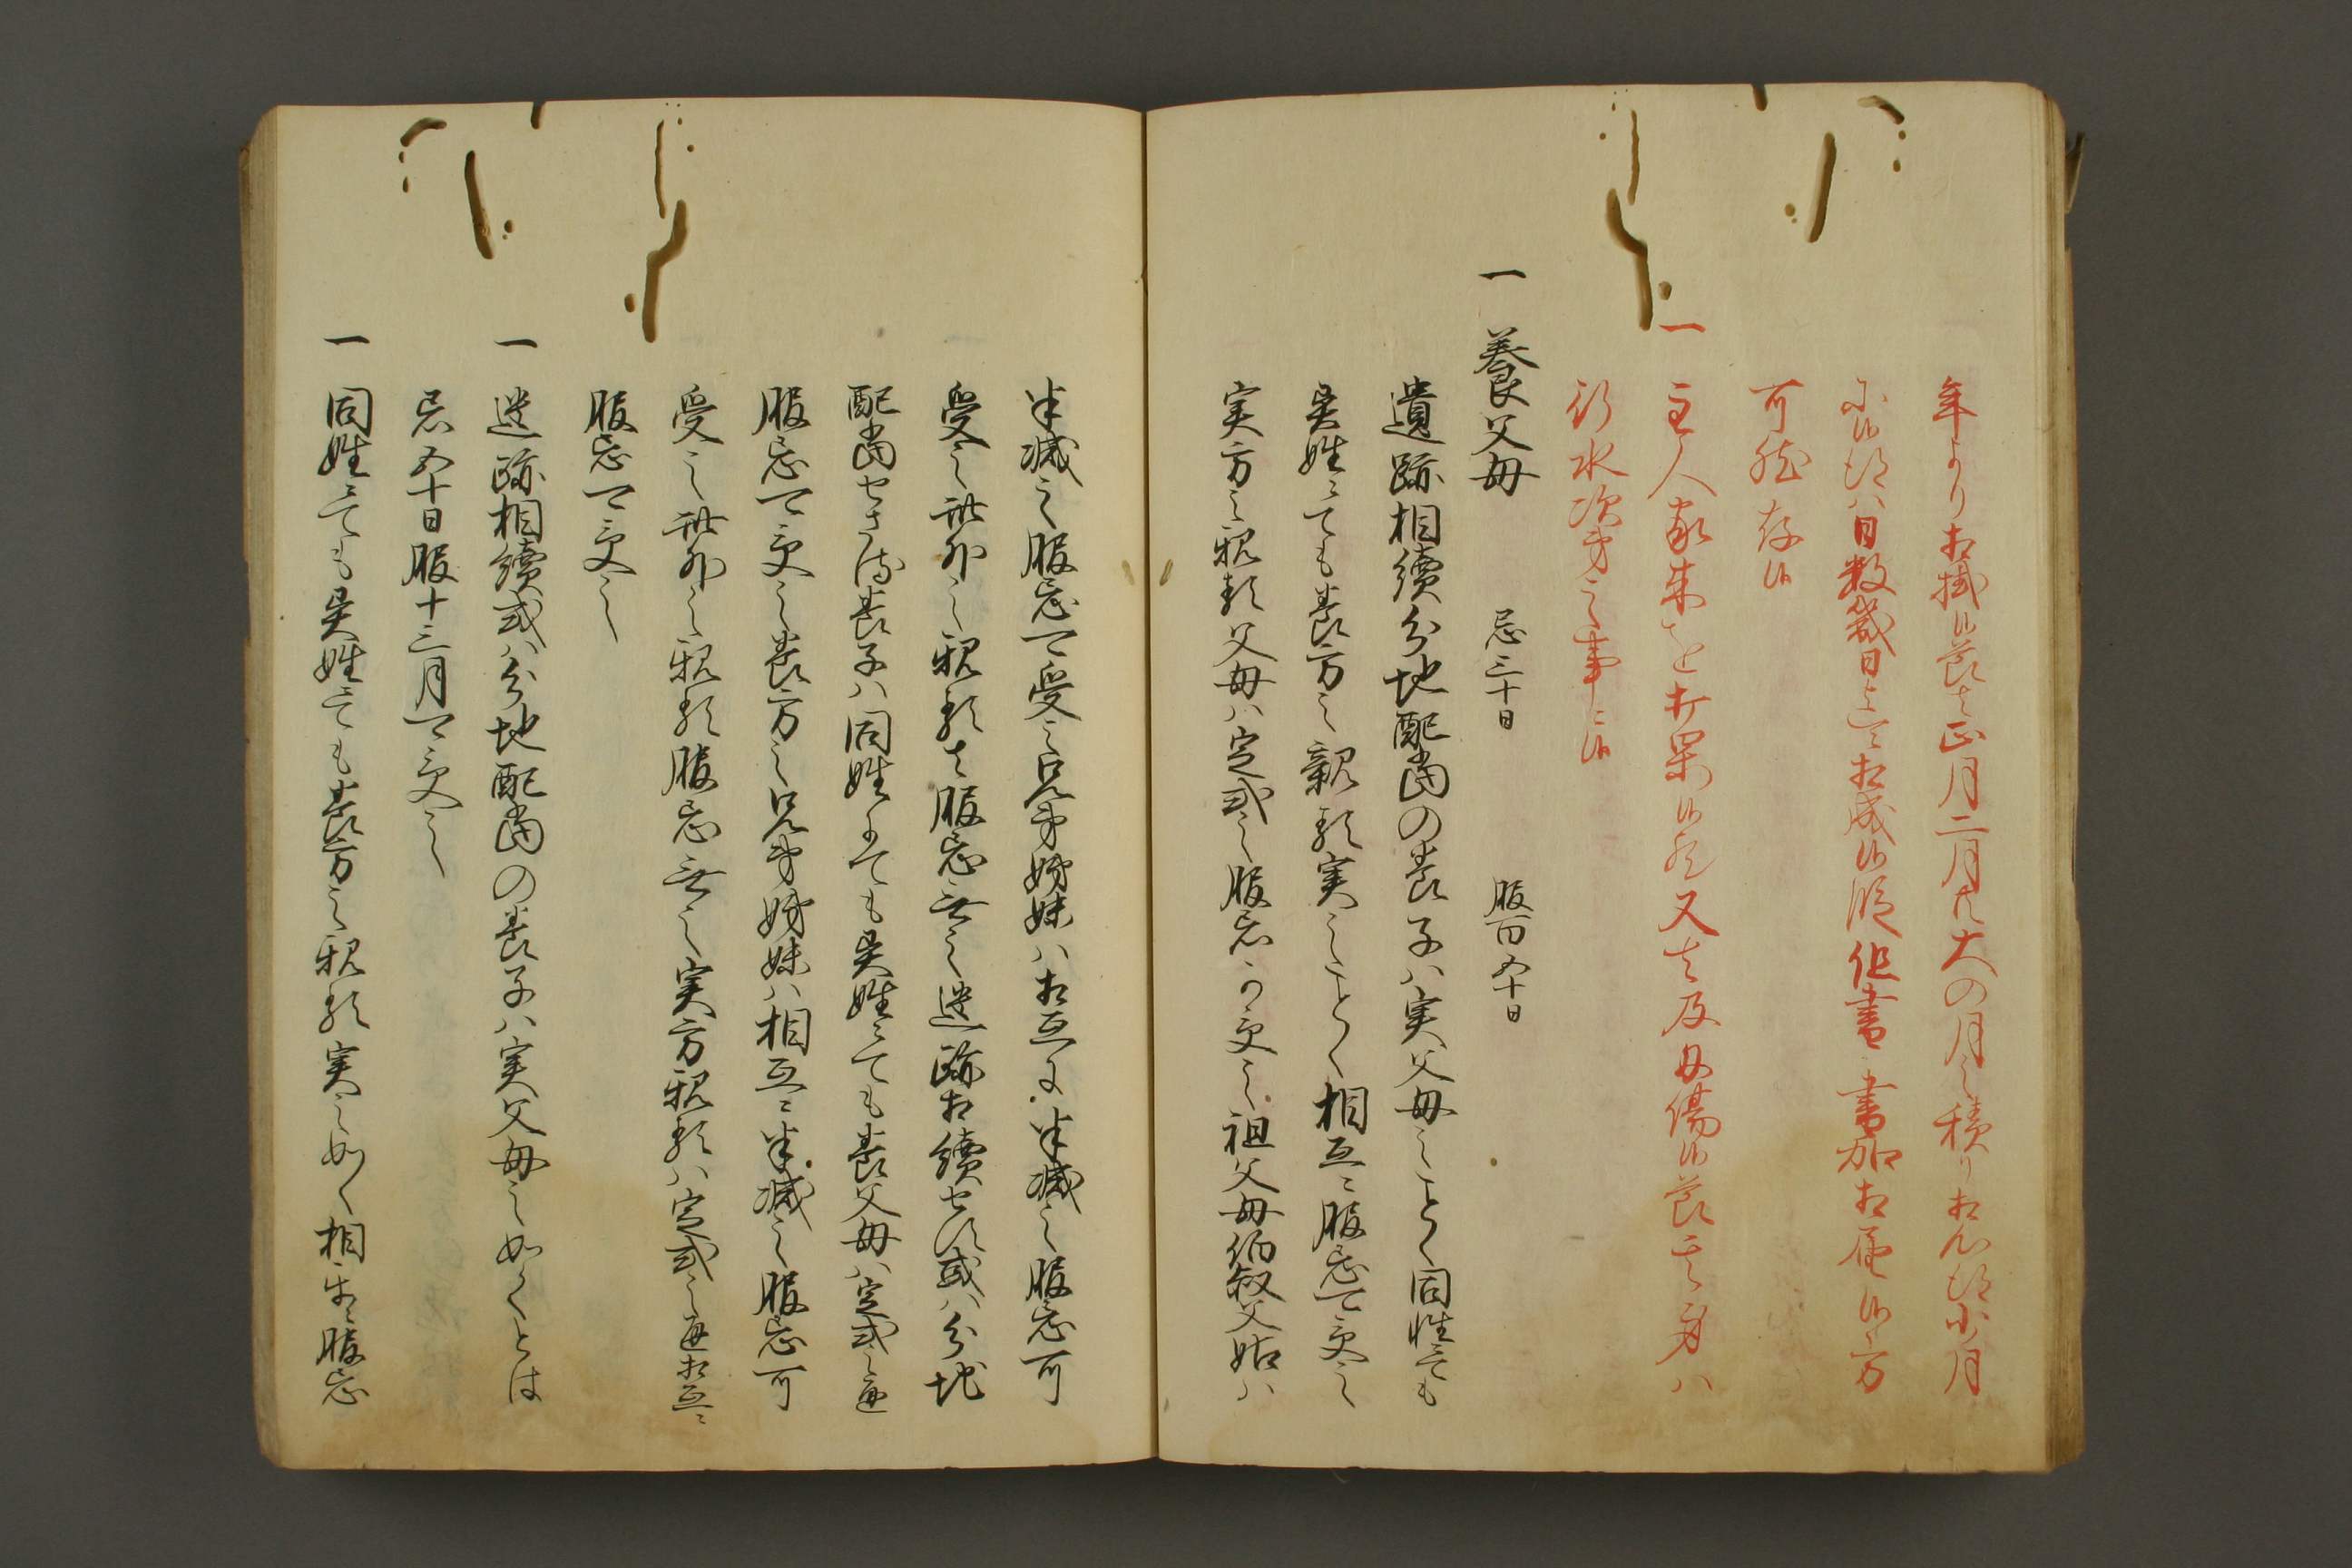 年より相掛候節者正月二月共大の月之積り相心得小月
候得ハ日数幾日と相成候段但書書加相届候方
可然存候
一 主人家来を打果候死又者及刃傷候節其身ハ
行水次第之事ニ候
一 養父母 忌三十日 服百五十日
遺跡相續分地配當の養子ハ実父母之ことく同姓ニても
異姓ニても養方之親類実之ことく相互ニ服忌可受之
実方之親類父母ハ定式之服忌可受之祖父母伯叔父姑ハ
半減之服忌可受之兄弟姉妹ハ相互に半減之服忌可
受之此外之親類者服忌無之遺跡相續せす或ハ分地
配當せさる養子ハ同姓にても異姓ニても養父母ハ定式之通
服忌可受之養方之兄弟姉妹ハ相互ニ半減之服忌可
受之此外之親類服忌無之実方親類ハ定式之通相互ニ
服忌可受之
一 遺跡相續或ハ分地配當の養子ハ実父母之如くとは
忌五十日服十三月可受之
一 同姓ニても異姓ニても養方之親類実之如く相互ニ服忌